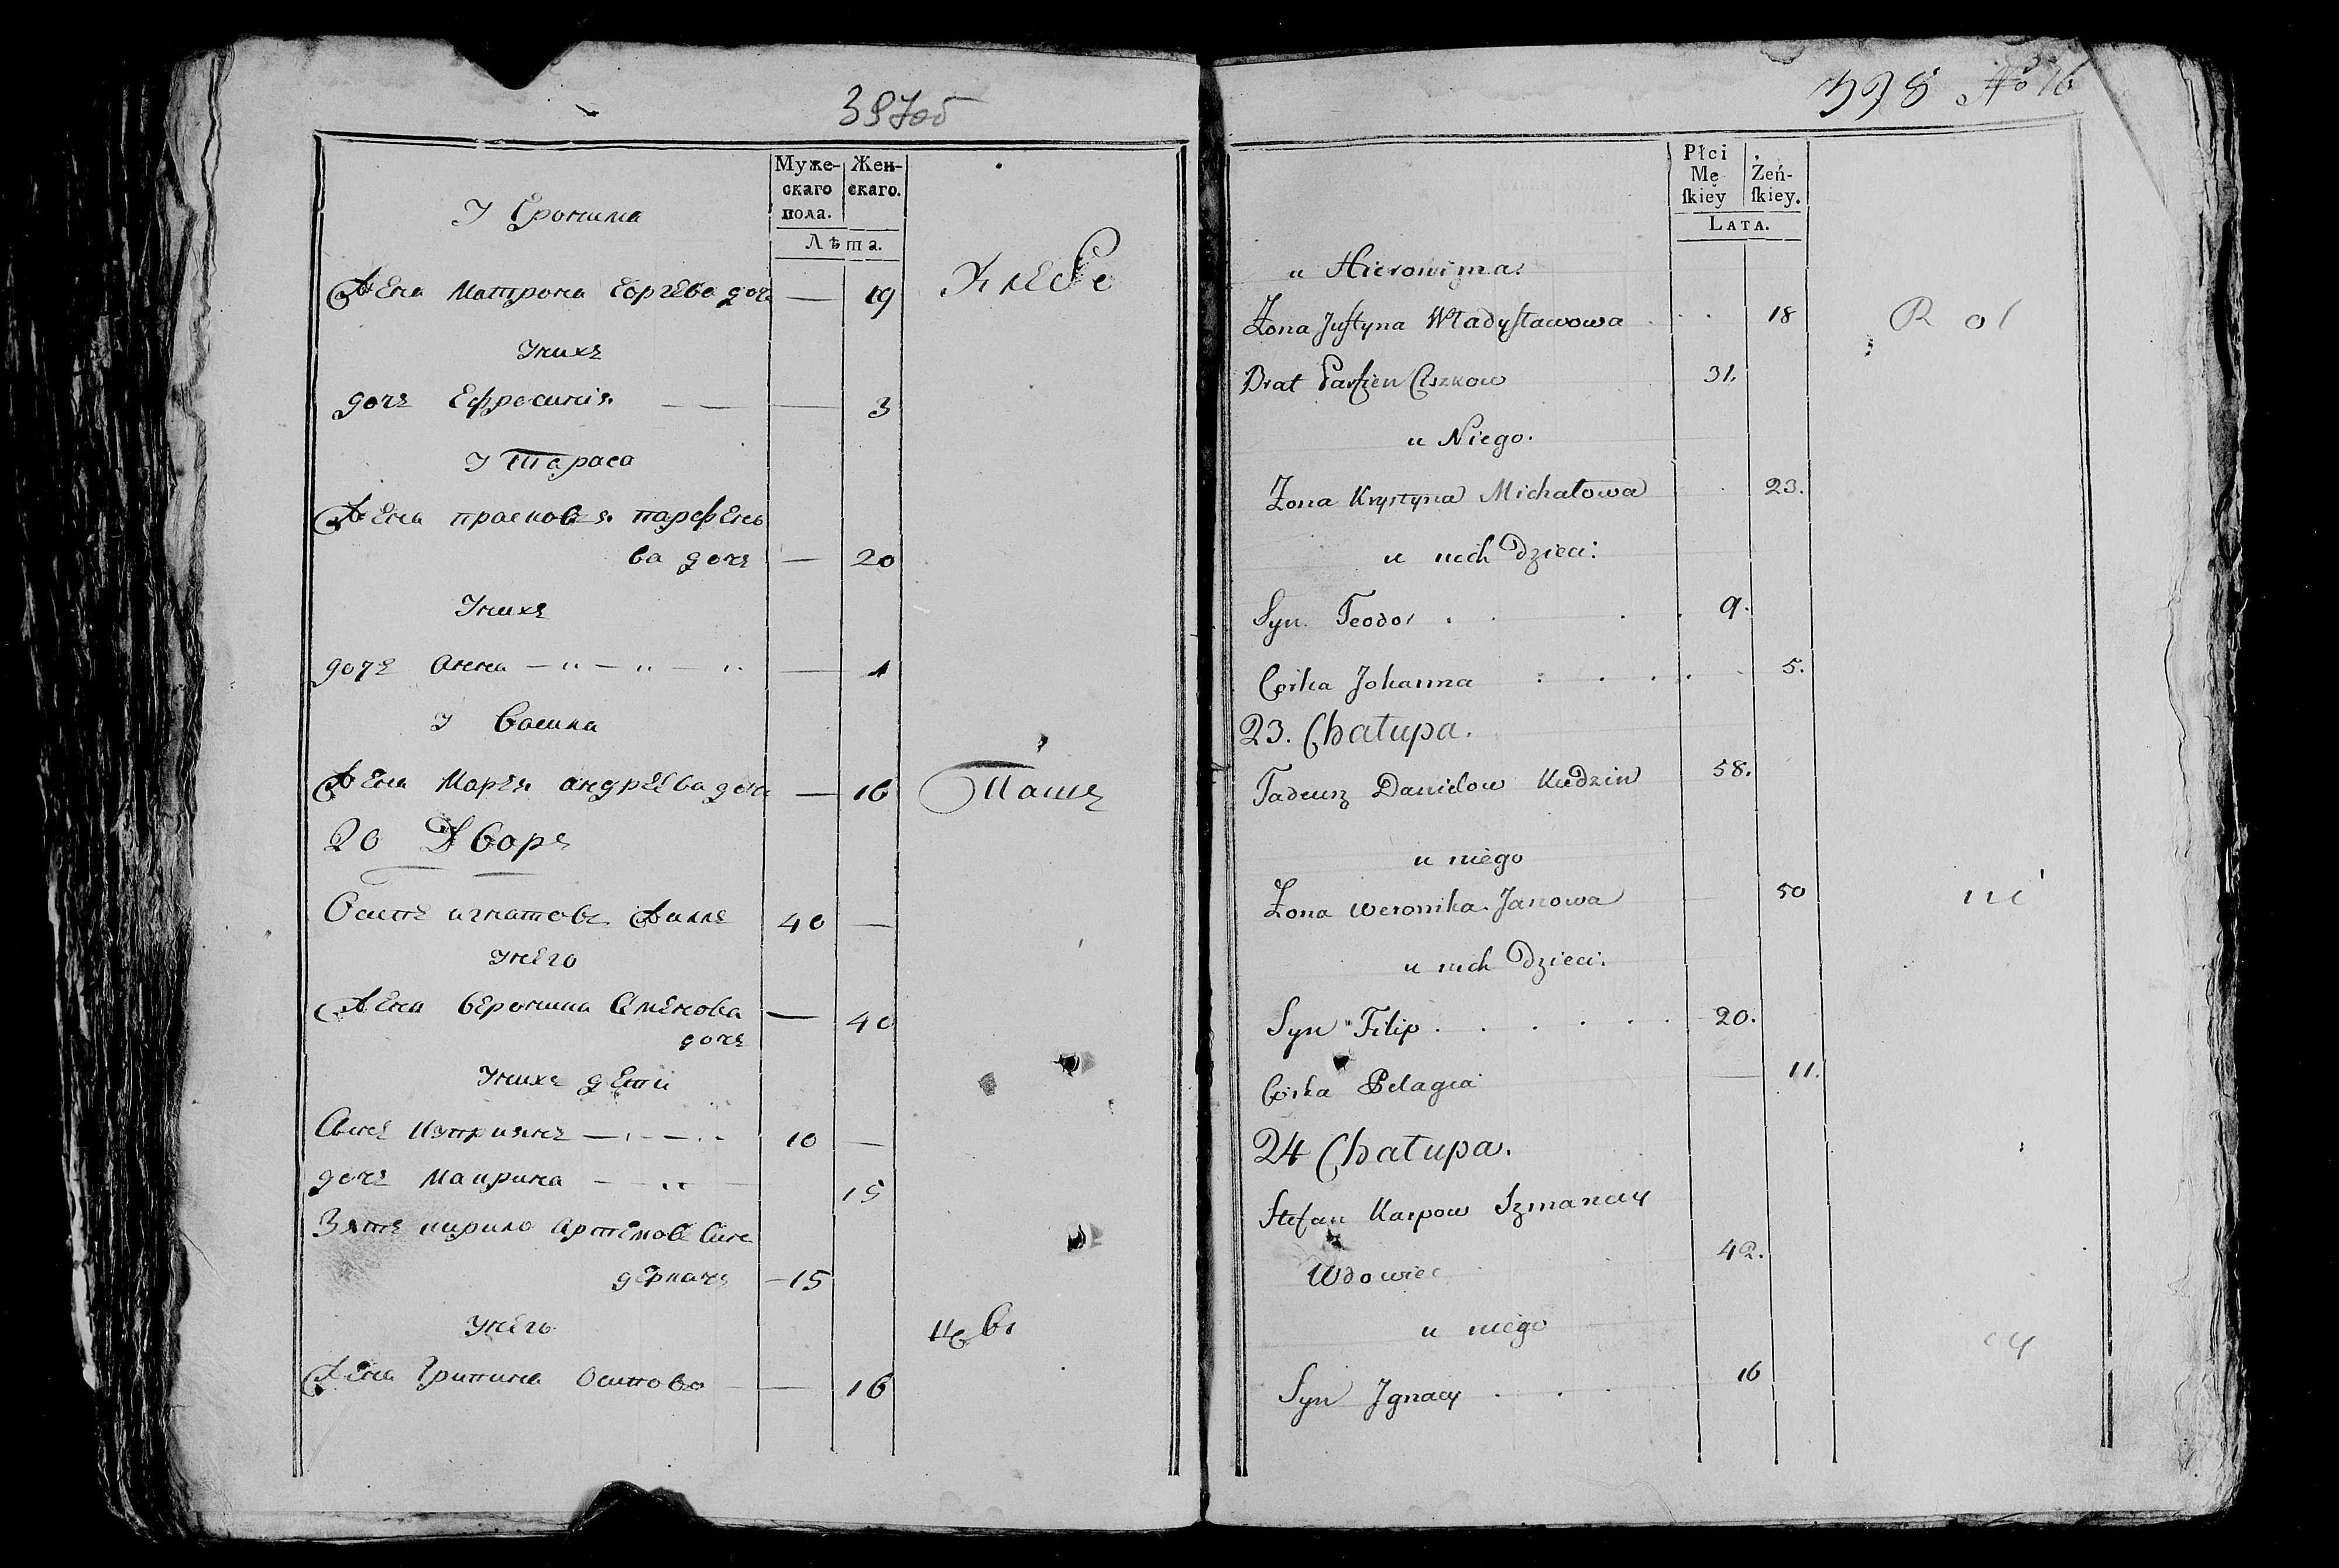 397об
Муже-
скаго
пола.
Жен-
скаго.
Лѣта.
У Еронима
Жена Матрона Еоргева доч
— 19
Хлебо
Унихъ
дочъ Ефросинія — — 3
У Тараса
Жена прасковья парфень
ва дочъ — 20
Унихъ
дочъ Анна — 1
У Васила
Жена Марья андреева доч — 16
Пашъ
20 Дворъ
Осипъ игнатовъ 40 —
Унего
Жена Вероника Семенова — 40
дочъ
Унихъ дети
Сынъ Купріянъ — 10 —
дочъ Маприна — 15
Зять кирило Артемовъ Сынъ
деркачъ — 15
Унего
Жена Грипина Осипова — 16
398 No 16
Płci
Mę
ſkiey
Żeń-
ſkiey.
Lata.
u Hieronima:
Żona Juſtyna Władyſławowa . . 18
R ol
Brat Parfien Ciszkow 31.
u Niego.
Żona Krystyna Michałowa 23.
u nich Dzieci:
Syn Teodor . . . . 9.
Corka Johanna . . . . 5.
23. Chałupa.
Tadeusz Daniłow Kudzin 58.
u niego
Żona Weronika Janowa 50
ni
u nich Dzieci:
Syn Filip . . . . . . 20.
Córka Pelagia 11.
24 Chałupa.
Stefan Karpow Szmanciy
Wdowiec 42.
u niego
cy
Syn Jgnacy . . . 16